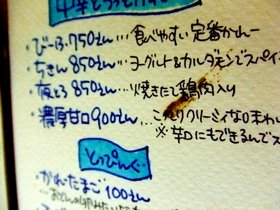 ・びーふ 750せん…食べやすい定番かれー
・ちきん 850せん…ヨーグルト&カルダモンでスパイ
850せん…焼きたて鶏肉入り
・濃厚甘口 900せん…こってりクリーミィな
※辛口にもできるんでス
とっぴんぐ
・かれーたまご 100せん